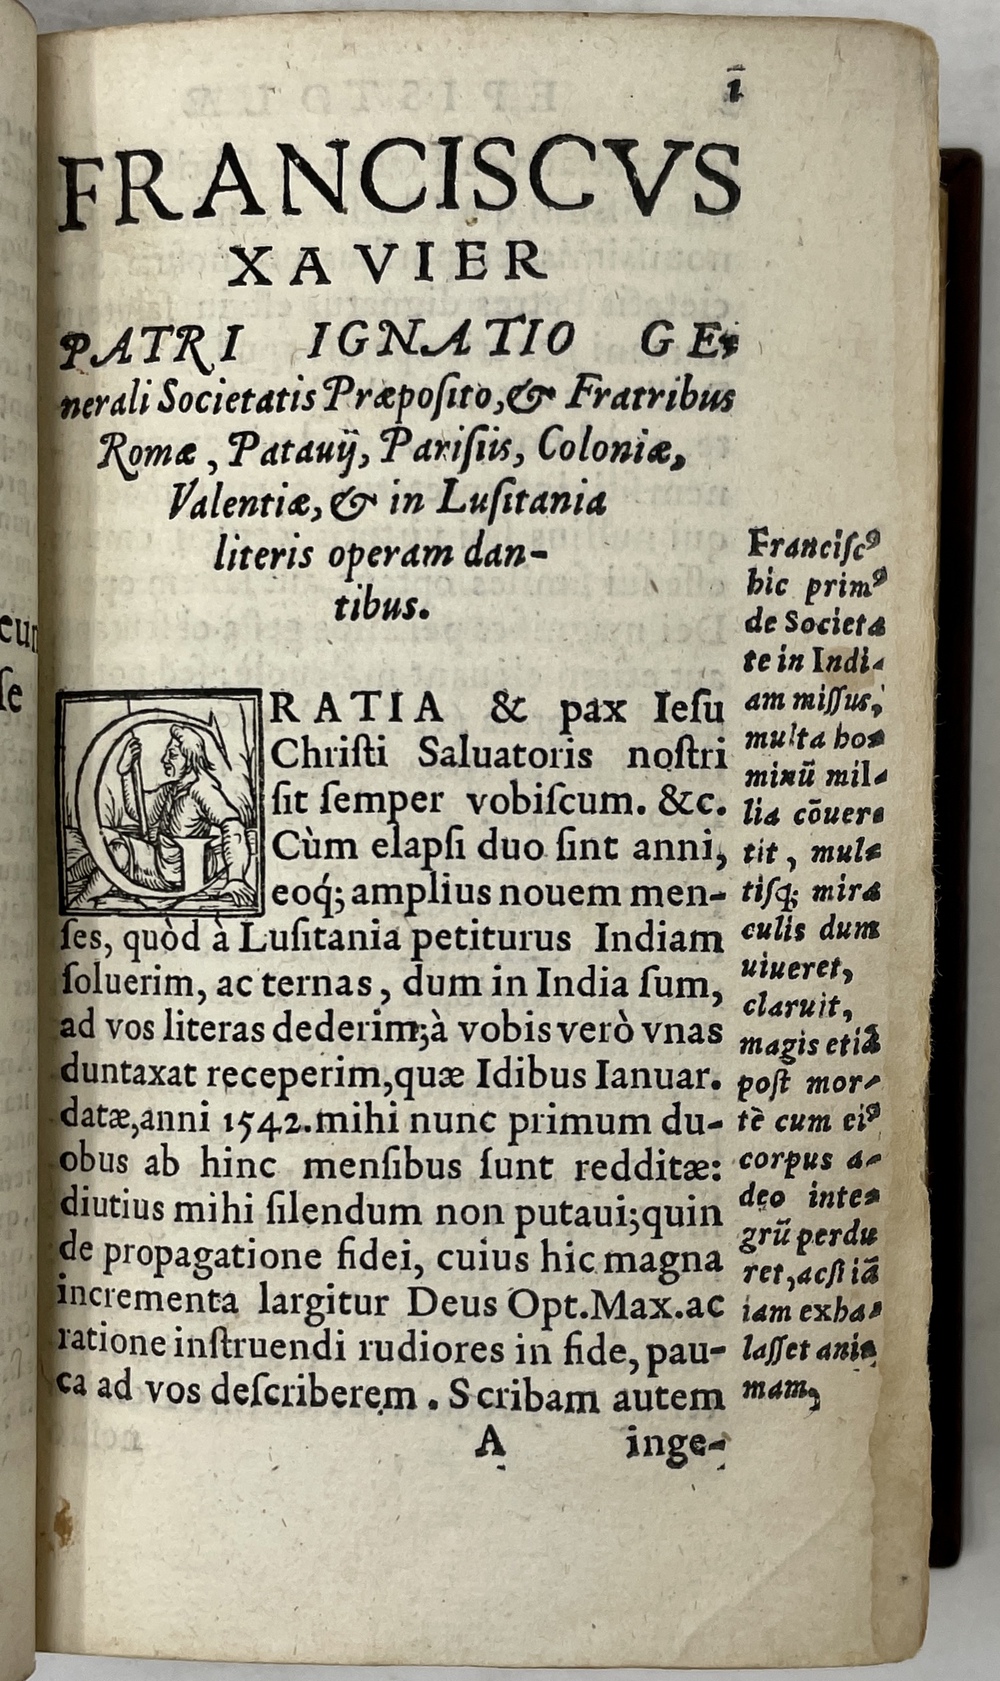 1
FRANCISCVS
XAVIER
PATRI IGNATIO GE-
nerali Societatis Præpoſito, & Fratribus
Romæ, Patauij, Pariſiis, Coloniæ,
Valentiæ, & in Luſitania
literis operam dan-
tibus.
GRATIA & pax Ieſu
Chriſti Saluatoris noſtri
ſit ſemper vobiſcum. &c.
Cùm elapſi duo ſint anni,
eoq́; amplius nouem men-
ſes, quòd à Luſitania petiturus Indiam
ſoluerim, ac ternas, dum in India ſum,
ad vos literas dederim; à vobis verò vnas
duntaxat receperim, quæ Idibus Ianuar.
datæ, anni 1542. mihi nunc primum du-
obus ab hinc menſibus ſunt redditæ:
diutius mihi ſilendum non putaui; quin
de propagatione fidei, cuius hic magna
incrementa largitur Deus Opt. Max. ac
ratione inſtruendi rudiores in fide, pau-
ca ad vos deſcriberem. Scribam autem
A inge-
Franciſcꝰ
hic primꝰ
de Societa
te in Indi-
am miſſus,
multa ho-
minū mil-
lia cōuer-
tit, mul-
tiſq; mira
culis dum
uiueret,
claruit,
magis etiā
poſt mor-
tē cum eiꝰ
corpus a-
deo inte-
grū perdu
ret, acſi iā
iam exha-
laſſet ani-
mam,
eum
ſe